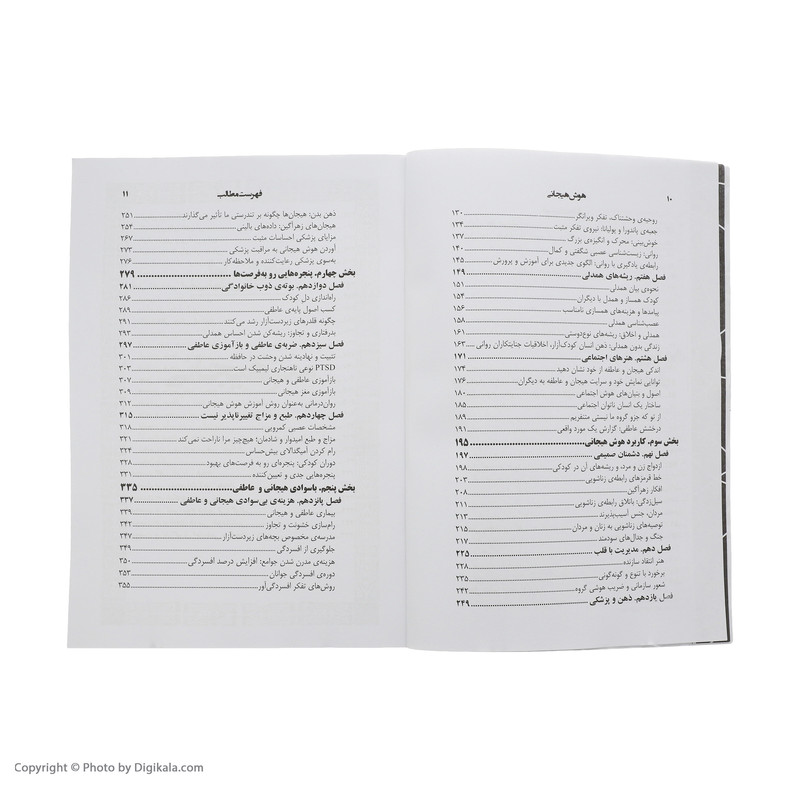 ۱۰ هوش هیجانی
روحیه‌ی وحشتناک، تفکر ویرانگر ۱۳۰
جعبه‌ی پاندورا و پولیانا: نیروی تفکر مثبت ۱۳۴
خوش‌بینی: محرک و انگیزه‌ی بزرگ ۱۳۷
روانی: زیست‌شناسی عصبی شگفتی و کمال ۱۴۰
رابطه‌ی یادگیری با روانی: الگوی جدیدی برای آموزش و پرورش ۱۴۵
فصل هفتم. ریشه‌های همدلی ۱۴۹
نحوه‌ی بیان همدلی ۱۵۱
کودک همساز و همدل با دیگران ۱۵۴
پیامدها و هزینه‌های همسازی نامناسب ۱۵۶
عصب‌شناسی همدلی ۱۵۸
همدلی و اخلاق: ریشه‌های نوع‌دوستی ۱۶۱
زندگی بدون همدلی: ذهن انسان کودک‌آزار، اخلاقیات جنایتکاران روانی ۱۶۳
فصل هشتم. هنرهای اجتماعی ۱۷۱
اندکی هیجان و عاطفه از خود نشان دهید ۱۷۴
توانایی نمایش خود و سرایت هیجان و عاطفه به دیگران ۱۷۶
اصول و بنیان‌های هوش اجتماعی ۱۸۰
ساختار یک انسان ناتوان اجتماعی ۱۸۵
از تو که جزو گروه ما نیستی متنفریم ۱۸۹
درخشش عاطفی: گزارش یک مورد واقعی ۱۹۱
بخش سوم. کاربرد هوش هیجانی ۱۹۵
فصل نهم. دشمنان صمیمی ۱۹۷
ازدواج زن و مرد، و ریشه‌های آن در کودکی ۱۹۸
خط قرمزهای رابطه‌ی زناشویی ۲۰۳
افکار زهرآگین ۲۰۸
سیل‌زدگی: باتلاق رابطه‌ی زناشویی ۲۱۱
مردان، جنس آسیب‌پذیرند
توصیه‌های زناشویی به زنان و مردان ۲۱۵
جنگ و جدال‌های سودمند ۲۱۷
فصل دهم. مدیریت با قلب ۲۲۵
هنر انتقاد سازنده ۲۲۸
برخورد با تنوع و گونه‌گونی ۲۳۵
شعور سازمانی و ضریب هوشی گروه ۲۴۲
فصل یازدهم. ذهن و پزشکی ۲۴۹
فهرست مطالب ۱۱
ذهن بدن: هیجان‌ها چگونه بر تندرستی ما تأثیر می‌گذارند ۲۵۱
هیجان‌های زهرآگین: داده‌های بالینی ۲۵۴
مزایای پزشکی احساسات مثبت ۲۶۷
آوردن هوش هیجانی به مراقبت پزشکی ۲۷۳
به‌سوی پزشکی رعایت‌کننده و ملاحظه‌کار ۲۷۶
بخش چهارم. پنجره‌هایی رو به‌فرصت‌ها ۲۷۹
فصل دوازدهم. بوته‌ی ذوب خانوادگی ۲۸۱
راه‌اندازی دل کودک ۲۸۶
کسب اصول پایه‌ی عاطفی ۲۸۹
چگونه قلدرهای زیردست‌آزار رشد می‌کنند ۲۹۱
بدرفتاری و تجاوز: ریشه‌کن شدن احساس همدلی ۲۹۳
فصل سیزدهم. ضربه‌ی عاطفی و بازآموزی عاطفی ۲۹۷
تثبیت و نهادینه شدن وحشت در حافظه ۳۰۱
PTSD نوعی ناهنجاری لیمبیک است ۳۰۳
بازآموزی عاطفی و هیجانی ۳۰۷
بازآموزی مغز هیجانی ۳۰۹
روان‌درمانی به‌عنوان روش آموزش هوش هیجانی ۳۱۲
فصل چهاردهم. طبع و مزاج تغییرناپذیر نیست ۳۱۵
مشخصات عصبی کمرویی ۳۱۸
مزاج و طبع امیدوار و شادمان: هیچ‌چیز مرا ناراحت نمی‌کند ۳۲۱
رام کردن آمیگدالای بیش‌حساس ۳۲۴
دوران کودکی: پنجره‌ای رو به فرصت‌های بهبود ۳۲۸
پنجره‌هایی جدی و تعیین‌کننده ۳۳۱
بخش پنجم. باسوادی هیجانی و عاطفی ۳۳۵
فصل پانزدهم. هزینه‌ی بی‌سوادی هیجانی و عاطفی ۳۳۷
بیماری عاطفی و هیجانی ۳۳۹
رام‌سازی خشونت و تجاوز ۳۴۲
مدرسه‌ی مخصوص بچه‌های زیردست‌آزار ۳۴۷
جلوگیری از افسردگی ۳۴۹
هزینه‌ی مدرن شدن جوامع: افزایش درصد افسردگی ۳۵۰
دوره‌ی افسردگی جوانان ۳۵۳
روش‌های تفکر افسردگی‌آور ۳۵۵
Copyright © Photo by Digikala.com